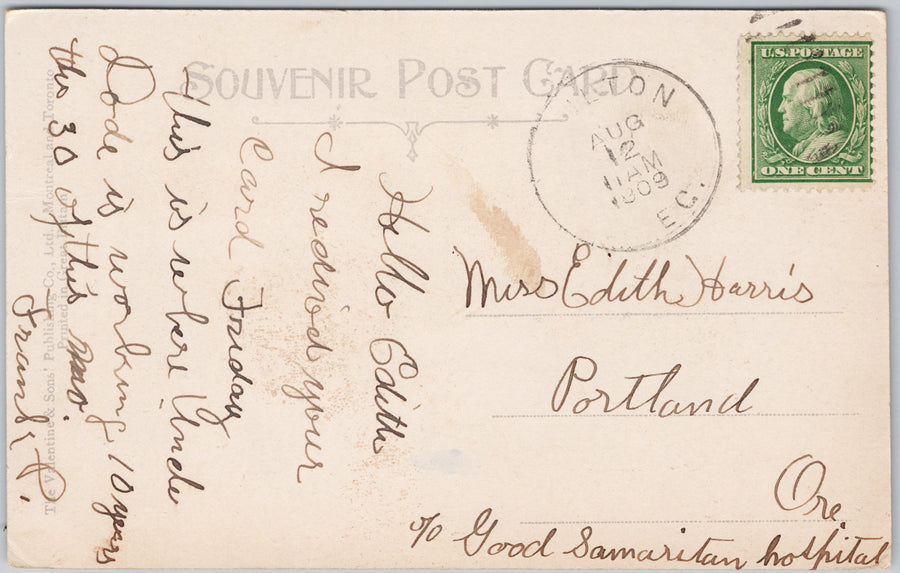 SOUVENIR POST CARD
U.S. POSTAGE
ONE CENT
ILTON
AUG
12
11 AM
1909
EG.
Miss Edith Harris
Portland
Ore
c/o Good Samaritan hospital
Hello Edith
I recived your
Card Friday
this is where Uncle
Dode is working 10 years
the 30 of this mo.
Frank P.
The Valentine & Sons' Publishing Co., Ltd., Montreal and Toronto
Printed in Great Britain